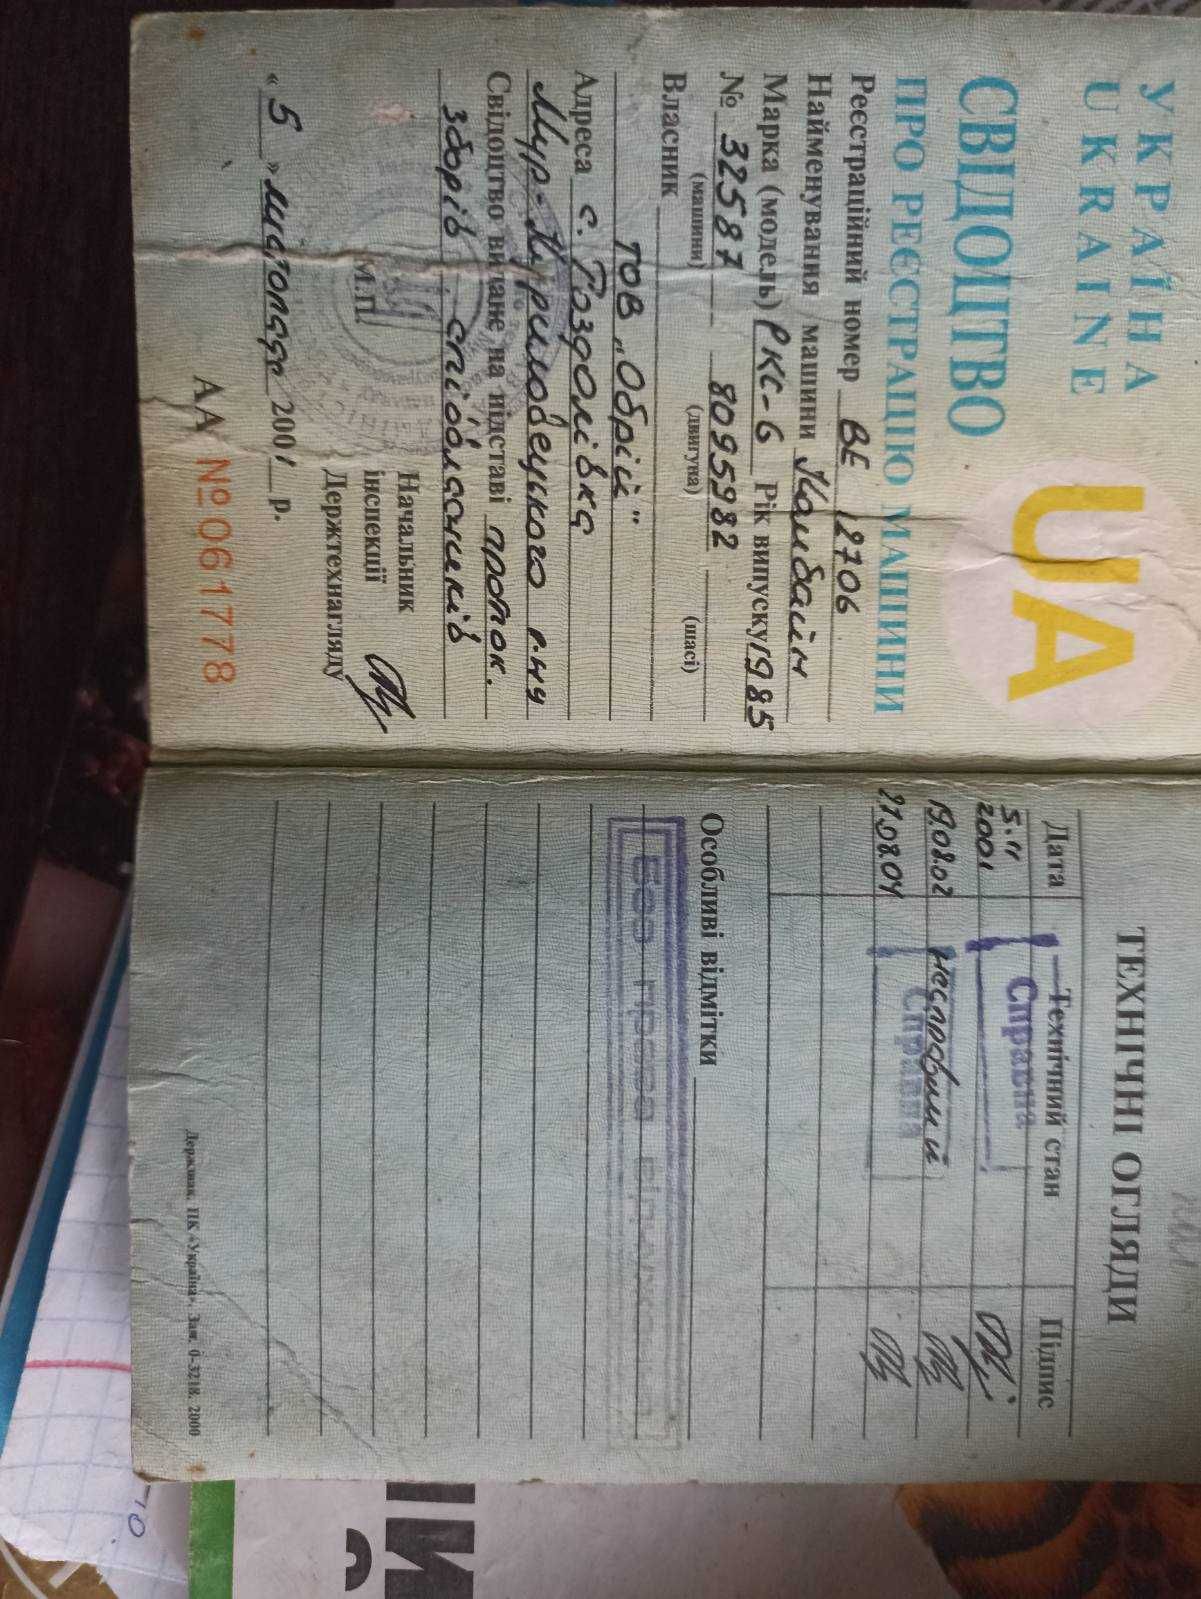 УКРАЇНА
UKRAINE
UA
СВІДОЦТВО
ПРО РЕЄСТРАЦІЮ МАШИНИ
Реєстраційний номер ВЕ 12706
Найменування машини Комбайн
Марка (модель) РКС-6 Рік випуску 1985
№ 32587 8095982
(машини) (двигуна) (шасі)
Власник
ТОВ „Обрій"
Адреса с. Роздолівка
Мур-Куриловецького р-ну
Свідоцтво видане на підставі проток.
зборів співвласників
М.П.
Начальник
інспекції
Держтехнагляду
« 5 » листопада 2001 р.
АА №061778
ТЕХНІЧНІ ОГЛЯДИ
Дата Технічний стан Підпис
5.11
2001 Справна
19.08.02 несправний
27.08.04 Справна
Особливі відмітки
Без права відчуження
Держзнак. ПК «Україна». Зам. 0-3218. 2000